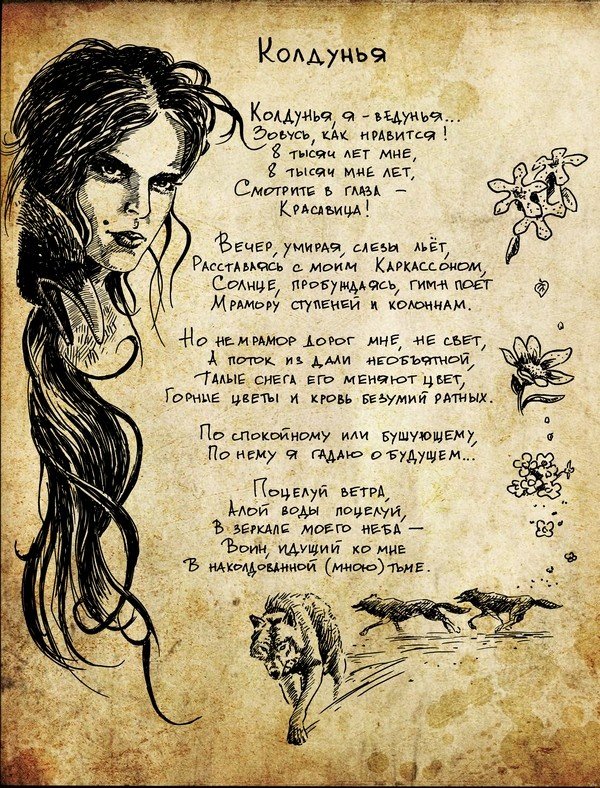 Колдунья
Колдунья, я - ведунья...
Зовусь, как нравится!
8 тысяч лет мне,
8 тысяч мне лет,
Смотрите в глаза –
Красавица!
Вечер, умирая, слезы льёт,
Расставаясь с моим Каркассоном,
Солнце, пробуждаясь, гимн поет
Мрамору ступеней и колоннам.
Но не мрамор дорог мне, не свет,
А поток из дали необъятной,
Талые снега его меняют цвет,
Горные цветы и кровь безумий ратных.
По спокойному или бушующему,
По нему я гадаю о будущем...
Поцелуй ветра,
Алой воды поцелуй,
В зеркале моего неба –
Воин, идущий ко мне
В наколдованной (мною) тьме.